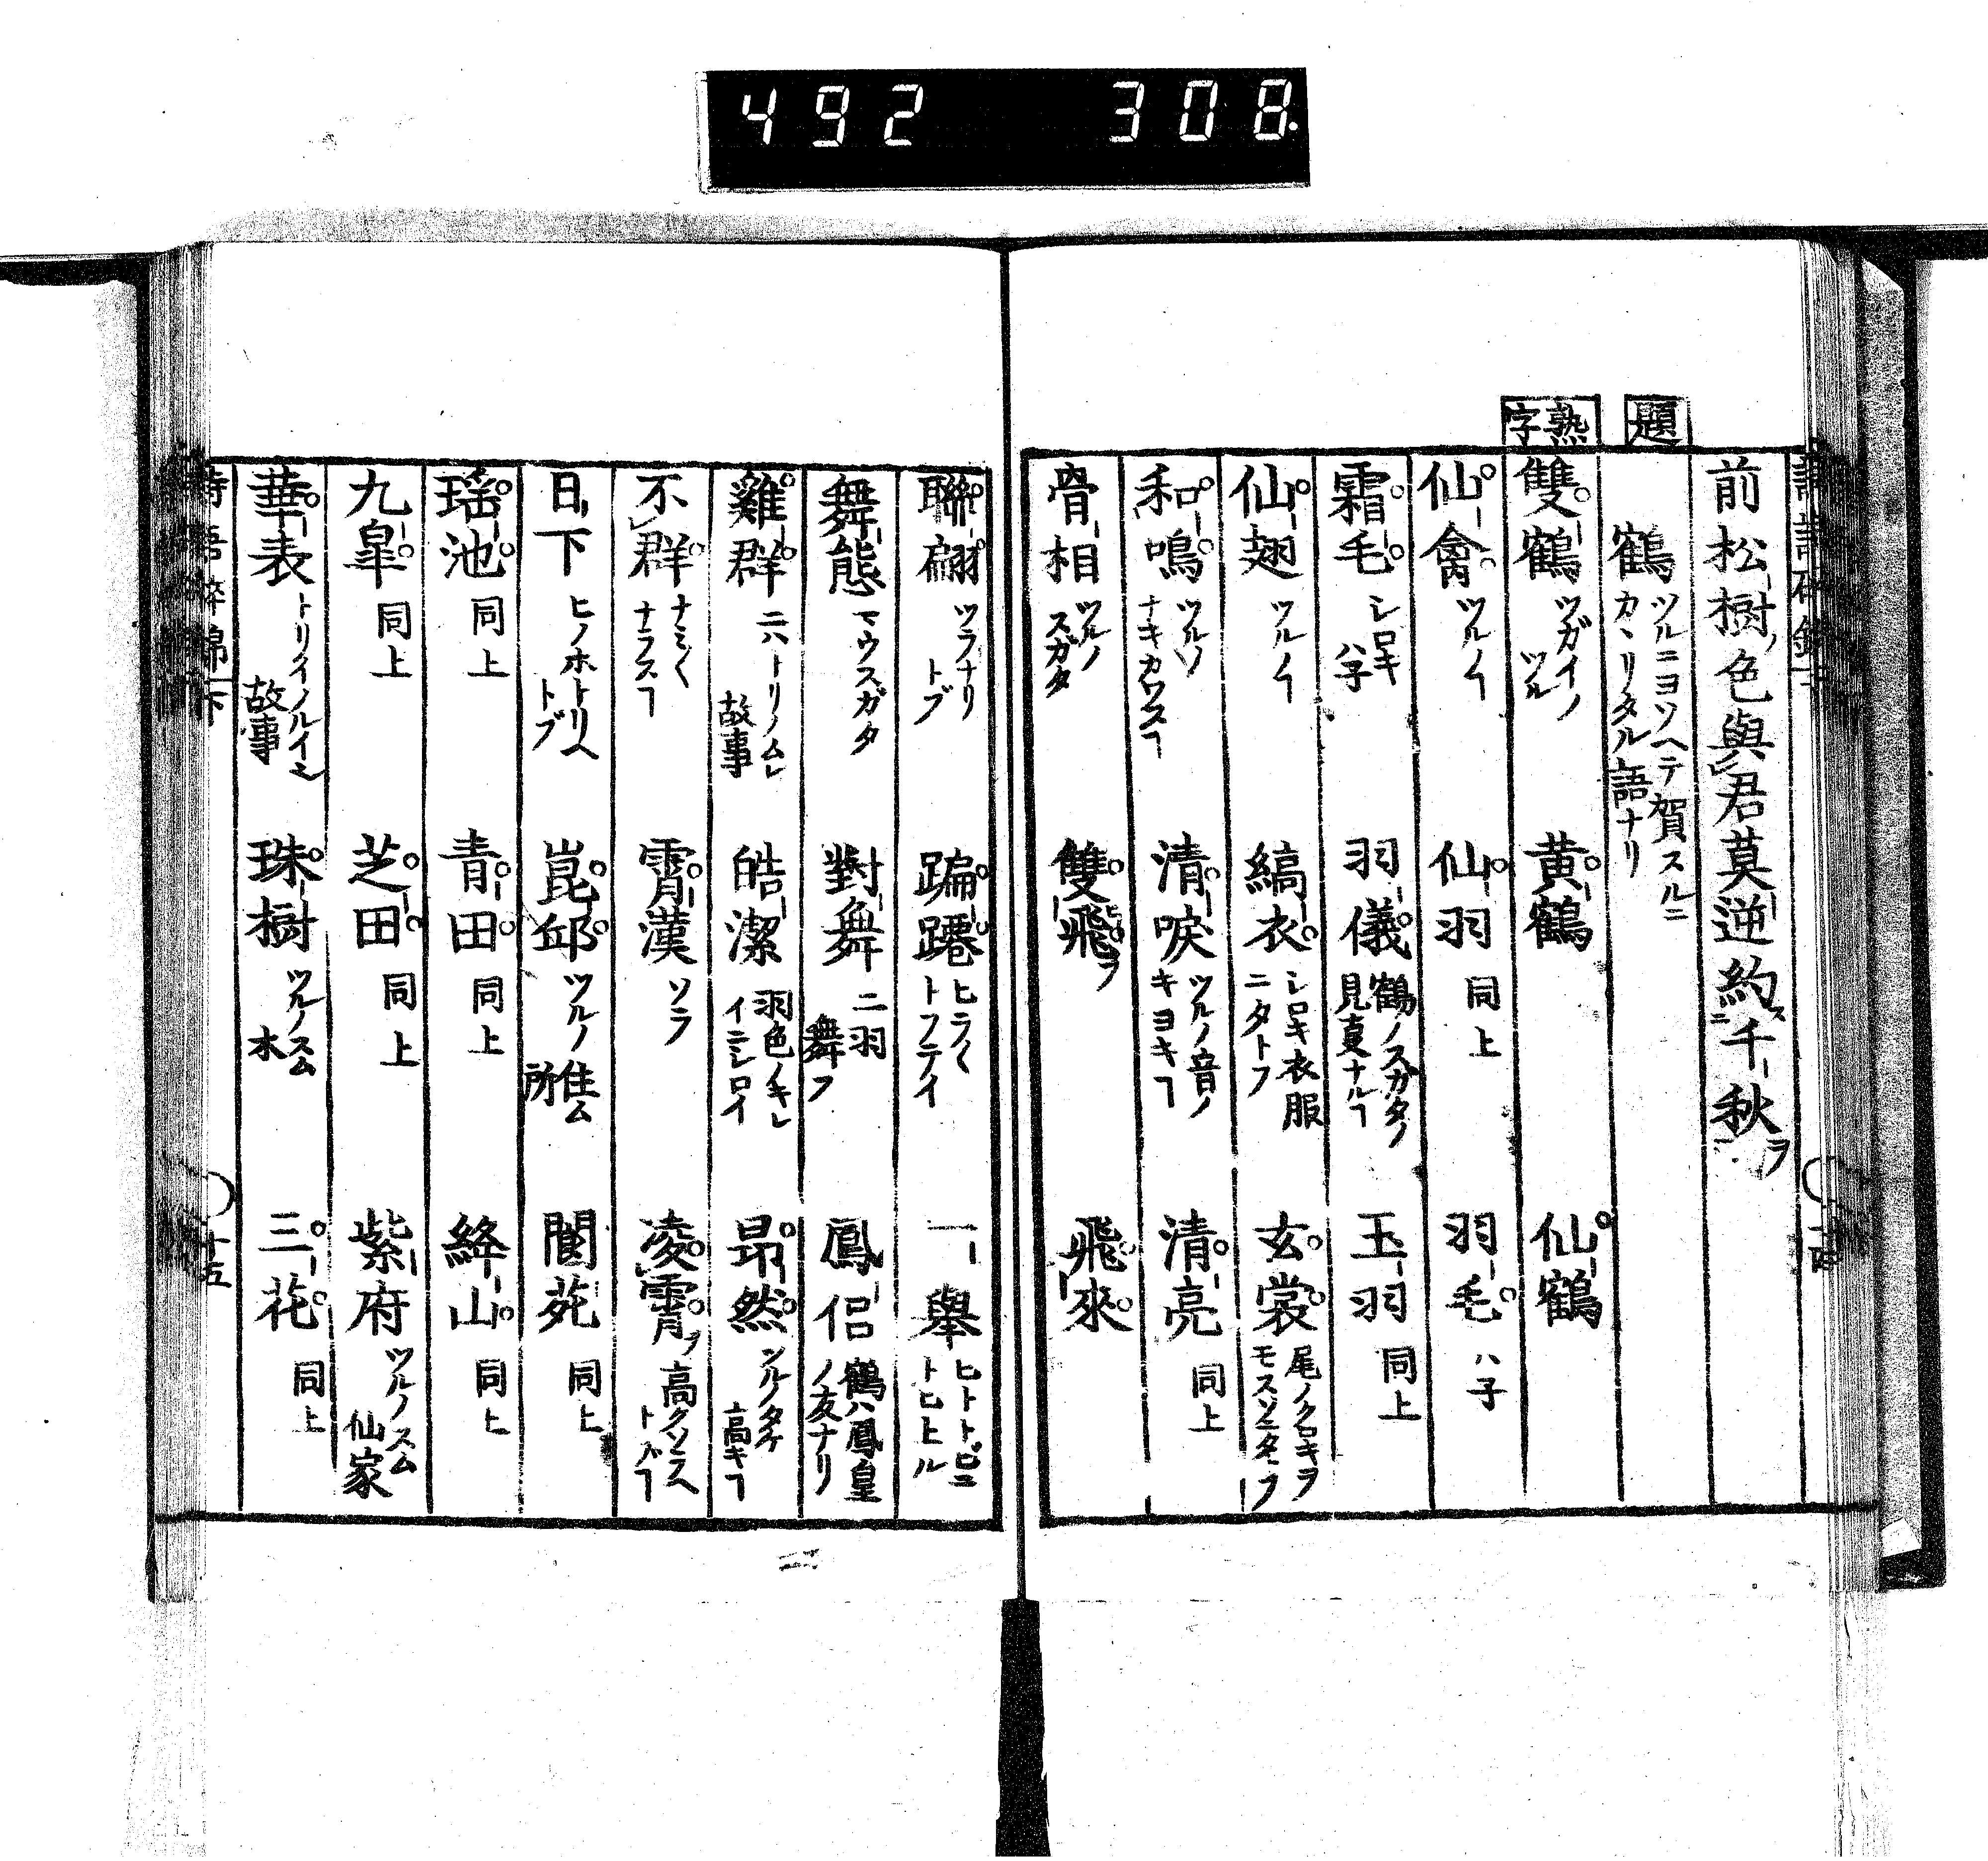 492 308.
前松樹ノ色與レ君莫逆約ス二千秋ヲ一
題
鶴 ツルニヨソヘテ賀スルニカヽリタル語ナリ
熟字
雙鶴 ツガイノツル 黄鶴 仙鶴
仙禽 ツルノヿ 仙羽 同上 羽毛 ハ子
霜毛 シロキハ子 羽儀 鶴ノスガタノ見事ナルヿ 玉羽 同上
仙翅 ツルノヿ 縞衣 シロキ衣服ニタトフ 玄裳 尾ノクロキヲモスソニタトフ
和鳴 ツルノナキカワスヿ 清唳 ツルノ音ノキヨキヿ 清亮 同上
骨相 ツルノスガタ 雙飛 飛來
聯翩 ツラナリトブ 蹁蹮 ヒラ〱トフテイ 一舉 ヒトトビニトヒ上ル
舞態 マウスガタ 對舞 二羽舞フ 鳳侶 鶴ハ鳳皇ノ友ナリ
雞群 ニハトリノムレ 故事 皓潔 羽色ノキレイニシロイ 昂然 ツルノタケ高キヿ
不レ群 ナミ〱ナラスヿ 霄漢 ソラ 凌レ霄ヲ 高クソラヘトブヿ
日下 ヒノホトリヘトブ 崑邱 ツルノ住ム所 閬苑 同上
瑶池 同上 青田 同上 絳山 同上
九皐 同上 芝田 同上 紫府 ツルノスム仙家
華表 トリイノルイ也 故事 珠樹 ツルノスム木 三花 同上
詩語碎錦 下 十五